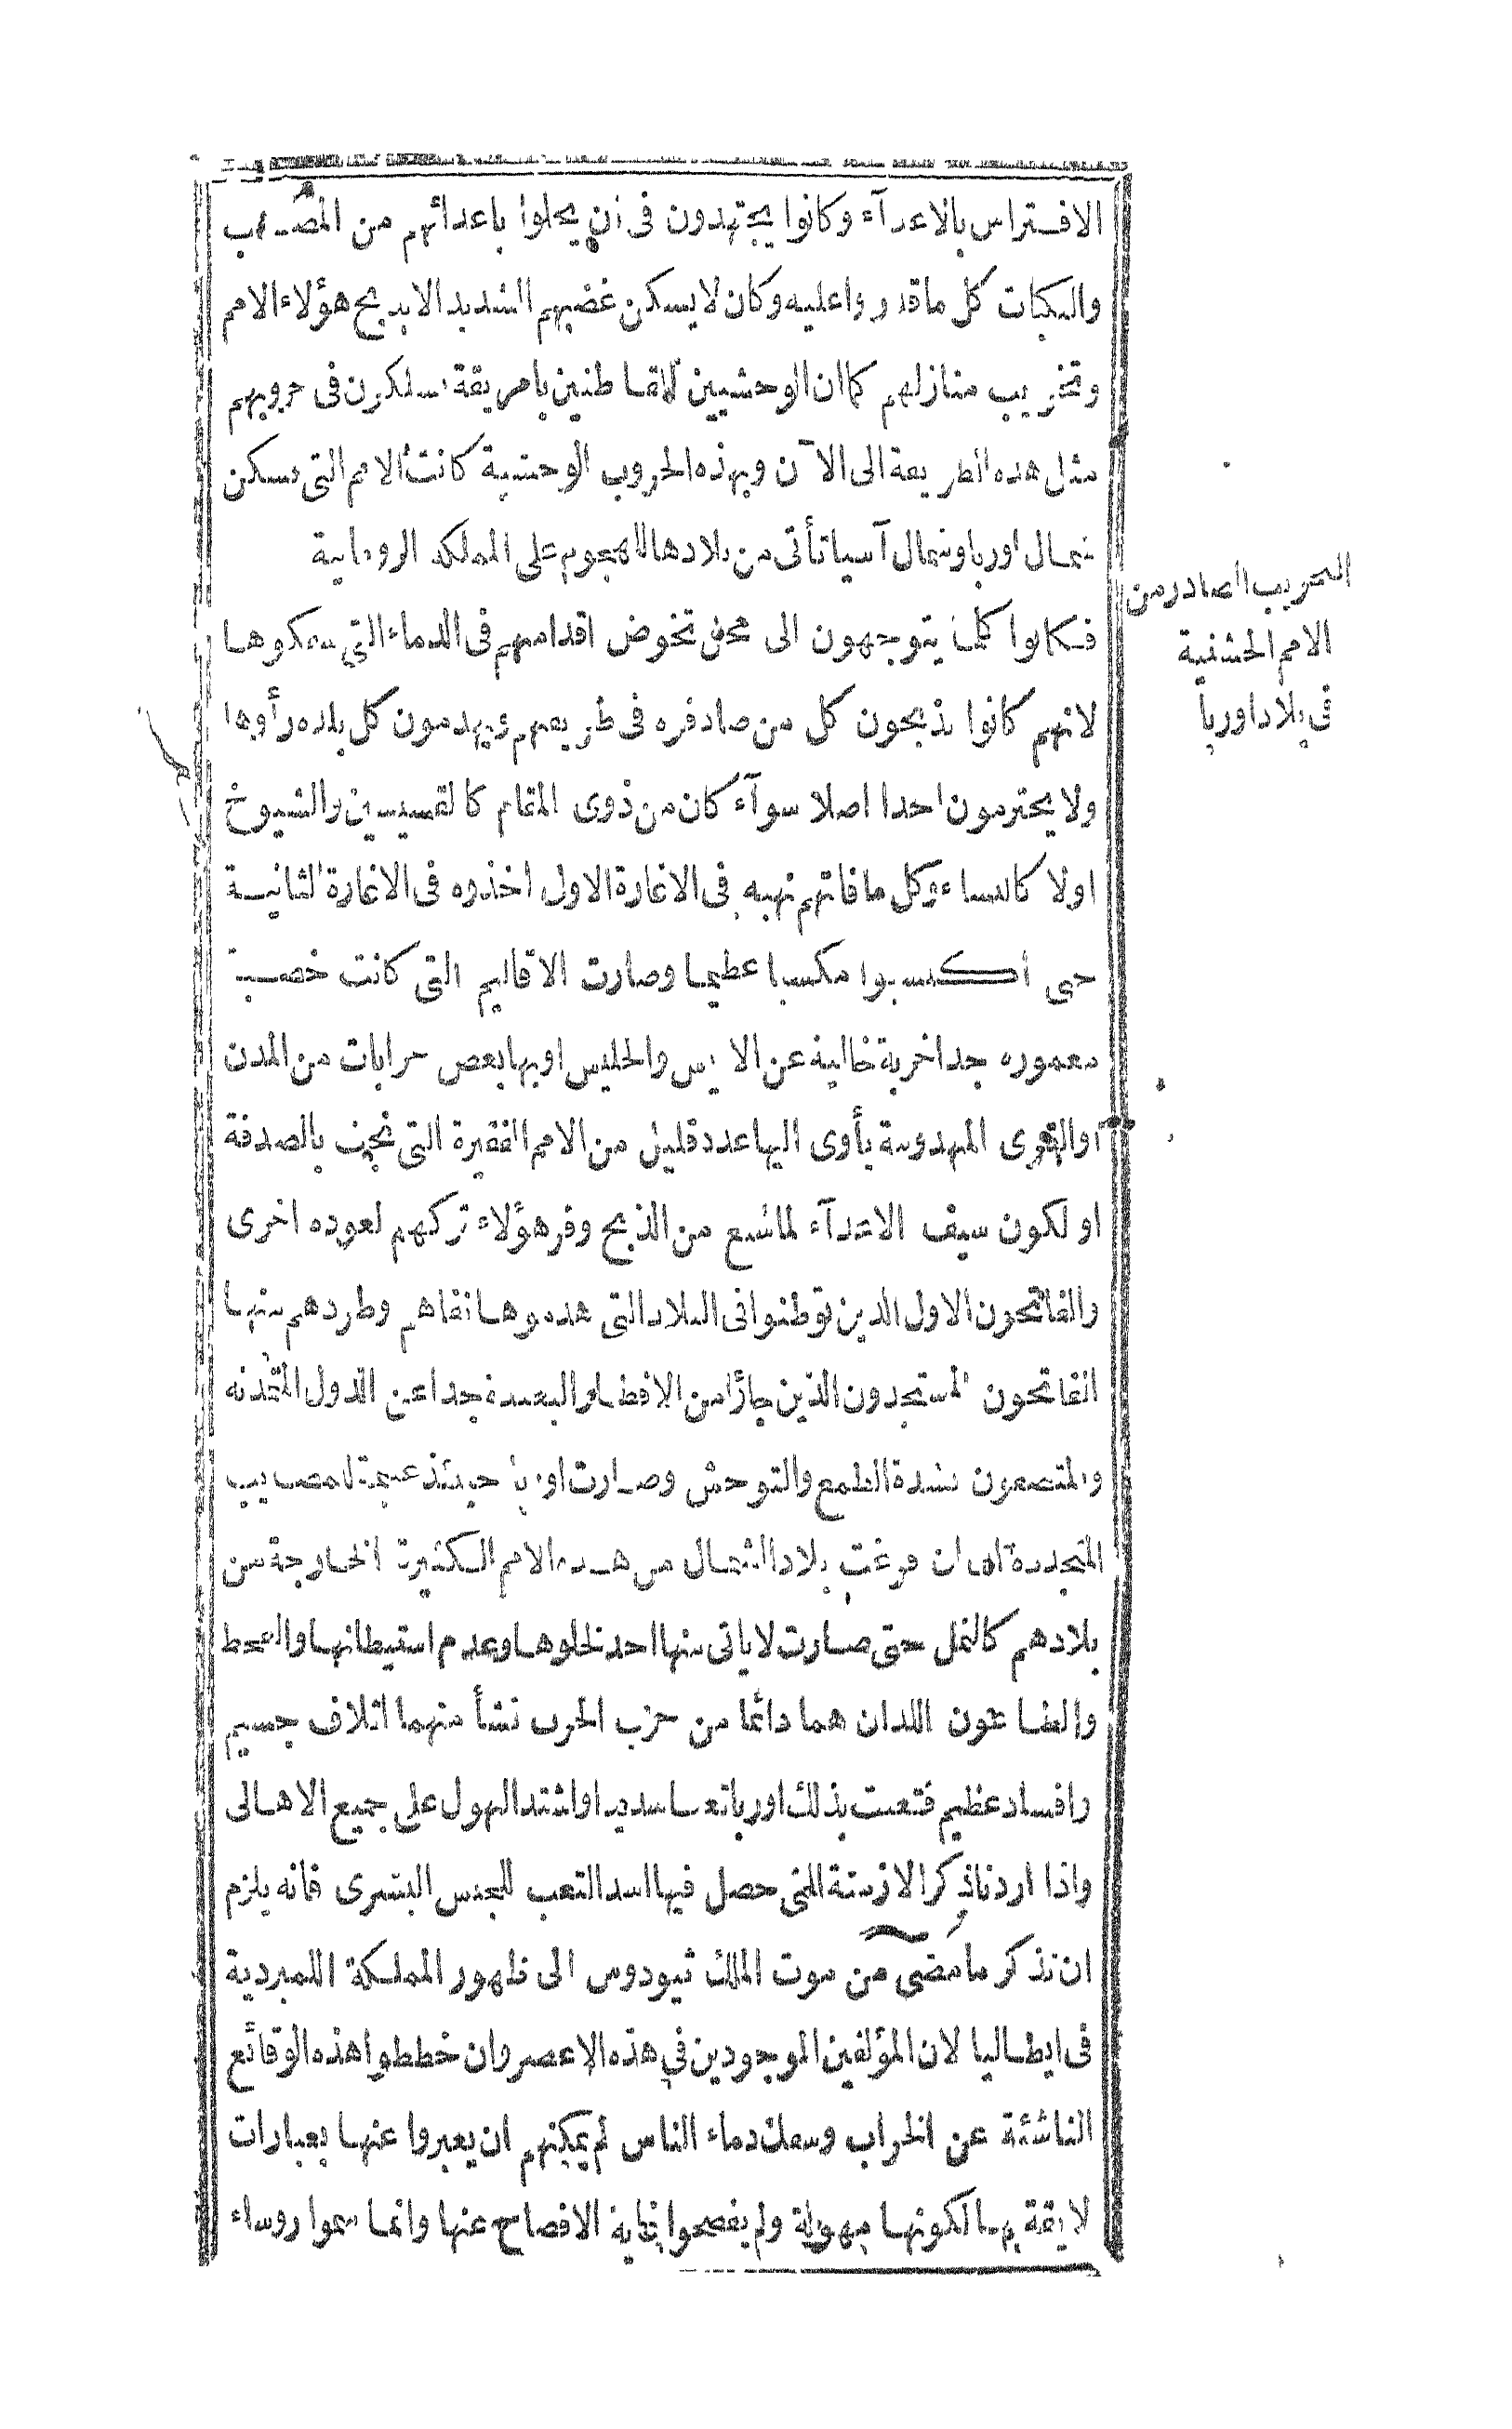 الافتراس بالاعدآء وكانوا يجتهدون فى ان يحلوا باعدائهم من المصائب
والنكبات كل ما قدروا عليه وكان لا يسكن غضبهم الشديد الا بذبح هؤلاء الامم
وتخريب منازلهم كما ان الوحشيين القاطنين بامريقة يسلكون فى حروبهم
مثل هذه الطريقة الى الآن وبهذه الحروب الوحشية كانت الامم التى تسكن
شمال اوربا وشمال آسيا تأتى من بلادها للهجوم على المملكة الرومانية
فكانوا كلما يتوجهون الى محل تخوض اقدامهم فى الدماء التى سفكوها
لانهم كانوا يذبحون كل من صادفوه فى طريقهم ويهدمون كل بلدة رأوها
ولا يحترمون احدا اصلا سوآء كان من ذوى المقام كالقسيسين والشيوخ
اولا كالنساء وكل ما فاتهم نهبه فى الاغارة الاولى اخذوه فى الاغارة الثانية
حتى اكتسبوا مكسبا عظيما وصارت الاقاليم التى كانت خصبة
معمورة جدا خربة خالية عن الانيس والجليس او بها بعض خرابات من المدن
او القرى المهدومة يأوى اليها عدد قليل من الامم الفقيرة التى نجت بالصدفة
او لكون سيف الاعدآء لما شبع من الذبح وفر هؤلاء تركهم لعودة اخرى
والفاتحون الاول الذين توطنوا فى البلاد التى هدموها نفاهم وطردهم منها
الفاتحون المستجدون الذين جاؤا من الاقطار البعيدة جدا عن الدول المتمدنة
والمتصفون بشدة الطمع والتوحش وصارت اوربا حينئذ عديمة المصائب
المتجددة الى ان فرغت بلاد الشمال من هذه الامم الكثيرة الخارجة من
بلادهم كالنمل حتى صارت لا يأتى منها احد لخلوها وعدم استيطانها والقحط
والطاعون اللذان هما دائما من حزب الحرب نشأ منهما اتلاف جسيم
وافساد عظيم فتعبت بذلك اوربا تعبا شديدا واشتد الهول على جميع الاهالى
واذا اردنا ذكر الازمنة التى حصل فيها اشد التعب للجنس البشرى فانه يلزم
ان نذكر ما مضى من موت الملك ثيودوس الى ظهور المملكة اللمبردية
فى ايطاليا لان المؤلفين الموجودين فى هذه الاعصر وان خططوا هذه الوقائع
الناشئة عن الخراب وسفك دماء الناس لم يمكنهم ان يعبروا عنها بعبارات
لايقة بها لكونها مهولة ولم يفصحوا غاية الافصاح عنها وانما سموا روساء
التخريب الصادر من
الامم الخشنية
فى بلاد اوربا